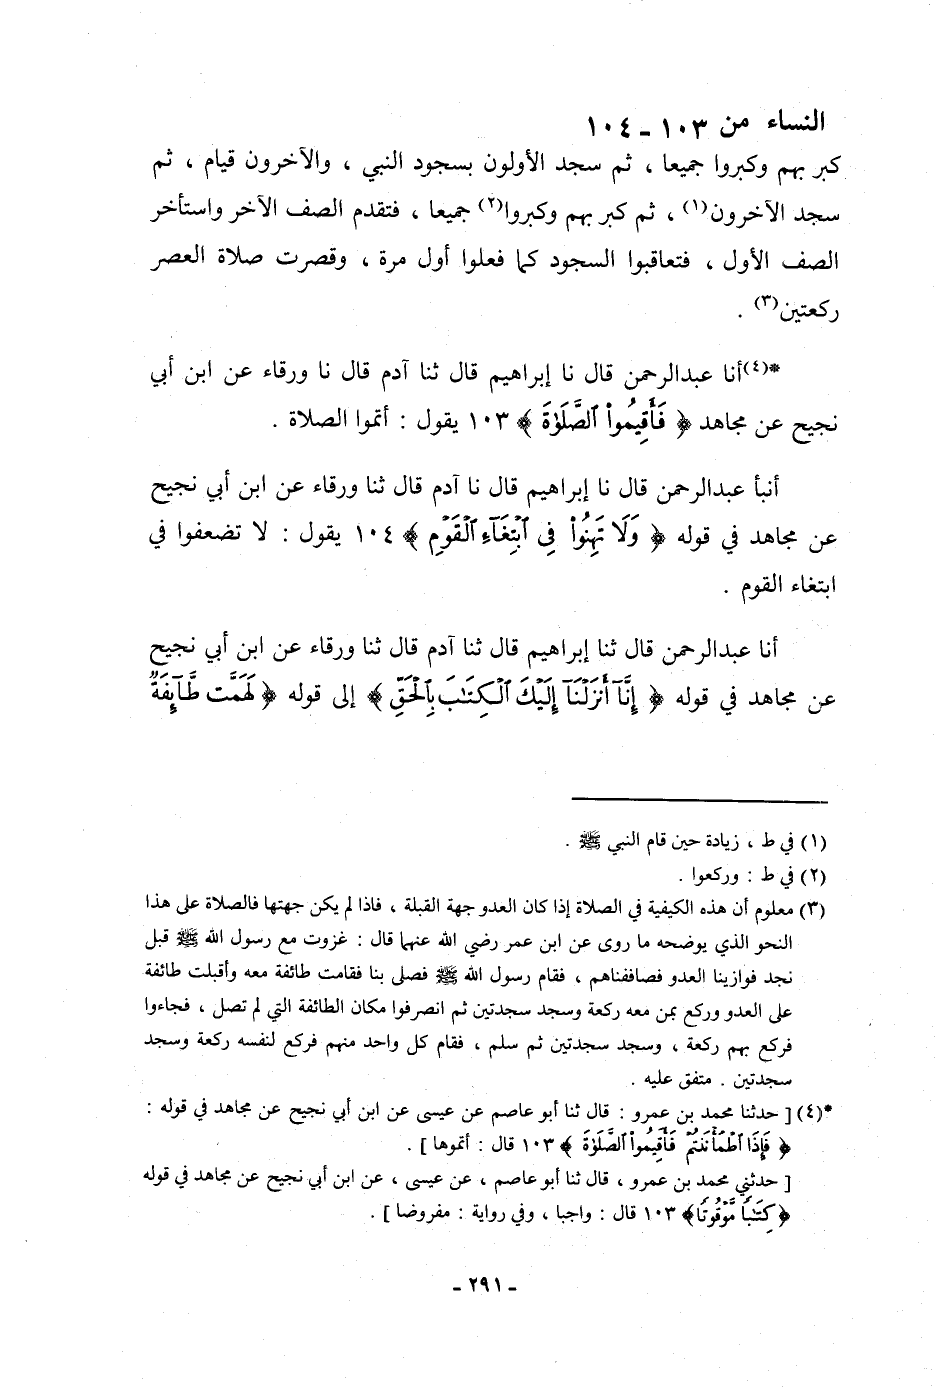 النساء من ١٠٣ - ١٠٤
كبر بهم وكبروا جميعا ، ثم سجد الأولون بسجود النبي ، والآخرون قيام ، ثم
سجد الآخرون(١) ، ثم كبر بهم وكبروا(٢) جميعا ، فتقدم الصف الآخر واستأخر
الصف الأول ، فتعاقبوا السجود كما فعلوا أول مرة ، وقصرت صلاة العصر
ركعتين(٣) .
*(٤)أنا عبدالرحمن قال نا إبراهيم قال ثنا آدم قال نا ورقاء عن ابن أبي
نجيح عن مجاهد ﴿ فَأَقِيمُوا۟ ٱلصَّلَوٰةَ ﴾ ١٠٣ يقول : أتموا الصلاة .
أنبأ عبدالرحمن قال نا إبراهيم قال نا آدم قال ثنا ورقاء عن ابن أبي نجيح
عن مجاهد في قوله ﴿ وَلَا تَهِنُوا۟ فِى ٱبْتِغَآءِ ٱلْقَوْمِ ﴾ ١٠٤ يقول : لا تضعفوا في
ابتغاء القوم .
أنا عبدالرحمن قال ثنا إبراهيم قال ثنا آدم قال ثنا ورقاء عن ابن أبي نجيح
عن مجاهد في قوله ﴿ إِنَّآ أَنزَلْنَآ إِلَيْكَ ٱلْكِتَٰبَ بِٱلْحَقِّ ﴾ إلى قوله ﴿ لَهَمَّت طَّآئِفَةٌ
(١) في ط ، زيادة حين قام النبي ﷺ .
(٢) في ط : وركعوا .
(٣) معلوم أن هذه الكيفية في الصلاة إذا كان العدو جهة القبلة ، فاذا لم يكن جهتها فالصلاة على هذا
النحو الذي يوضحه ما روى عن ابن عمر رضي الله عنهما قال : غزوت مع رسول الله ﷺ قبل
نجد فوازينا العدو فصاففناهم ، فقام رسول الله ﷺ فصلى بنا فقامت طائفة معه وأقبلت طائفة
على العدو وركع بمن معه ركعة وسجد سجدتين ثم انصرفوا مكان الطائفة التي لم تصل ، فجاءوا
فركع بهم ركعة ، وسجد سجدتين ثم سلم ، فقام كل واحد منهم فركع لنفسه ركعة وسجد
سجدتين . متفق عليه .
*(٤) [ حدثنا محمد بن عمرو : قال ثنا أبو عاصم عن عيسى عن ابن أبي نجيح عن مجاهد في قوله :
﴿ فَإِذَا ٱطْمَأْنَنتُمْ فَأَقِيمُوا۟ ٱلصَّلَوٰةَ ﴾ ١٠٣ قال : أتموها ] .
[ حدثني محمد بن عمرو ، قال ثنا أبو عاصم ، عن عيسى ، عن ابن أبي نجيح عن مجاهد في قوله
﴿ كِتَٰبًا مَّوْقُوتًا ﴾ ١٠٣ قال : واجبا ، وفي رواية : مفروضا ] .
- ٢٩١ -